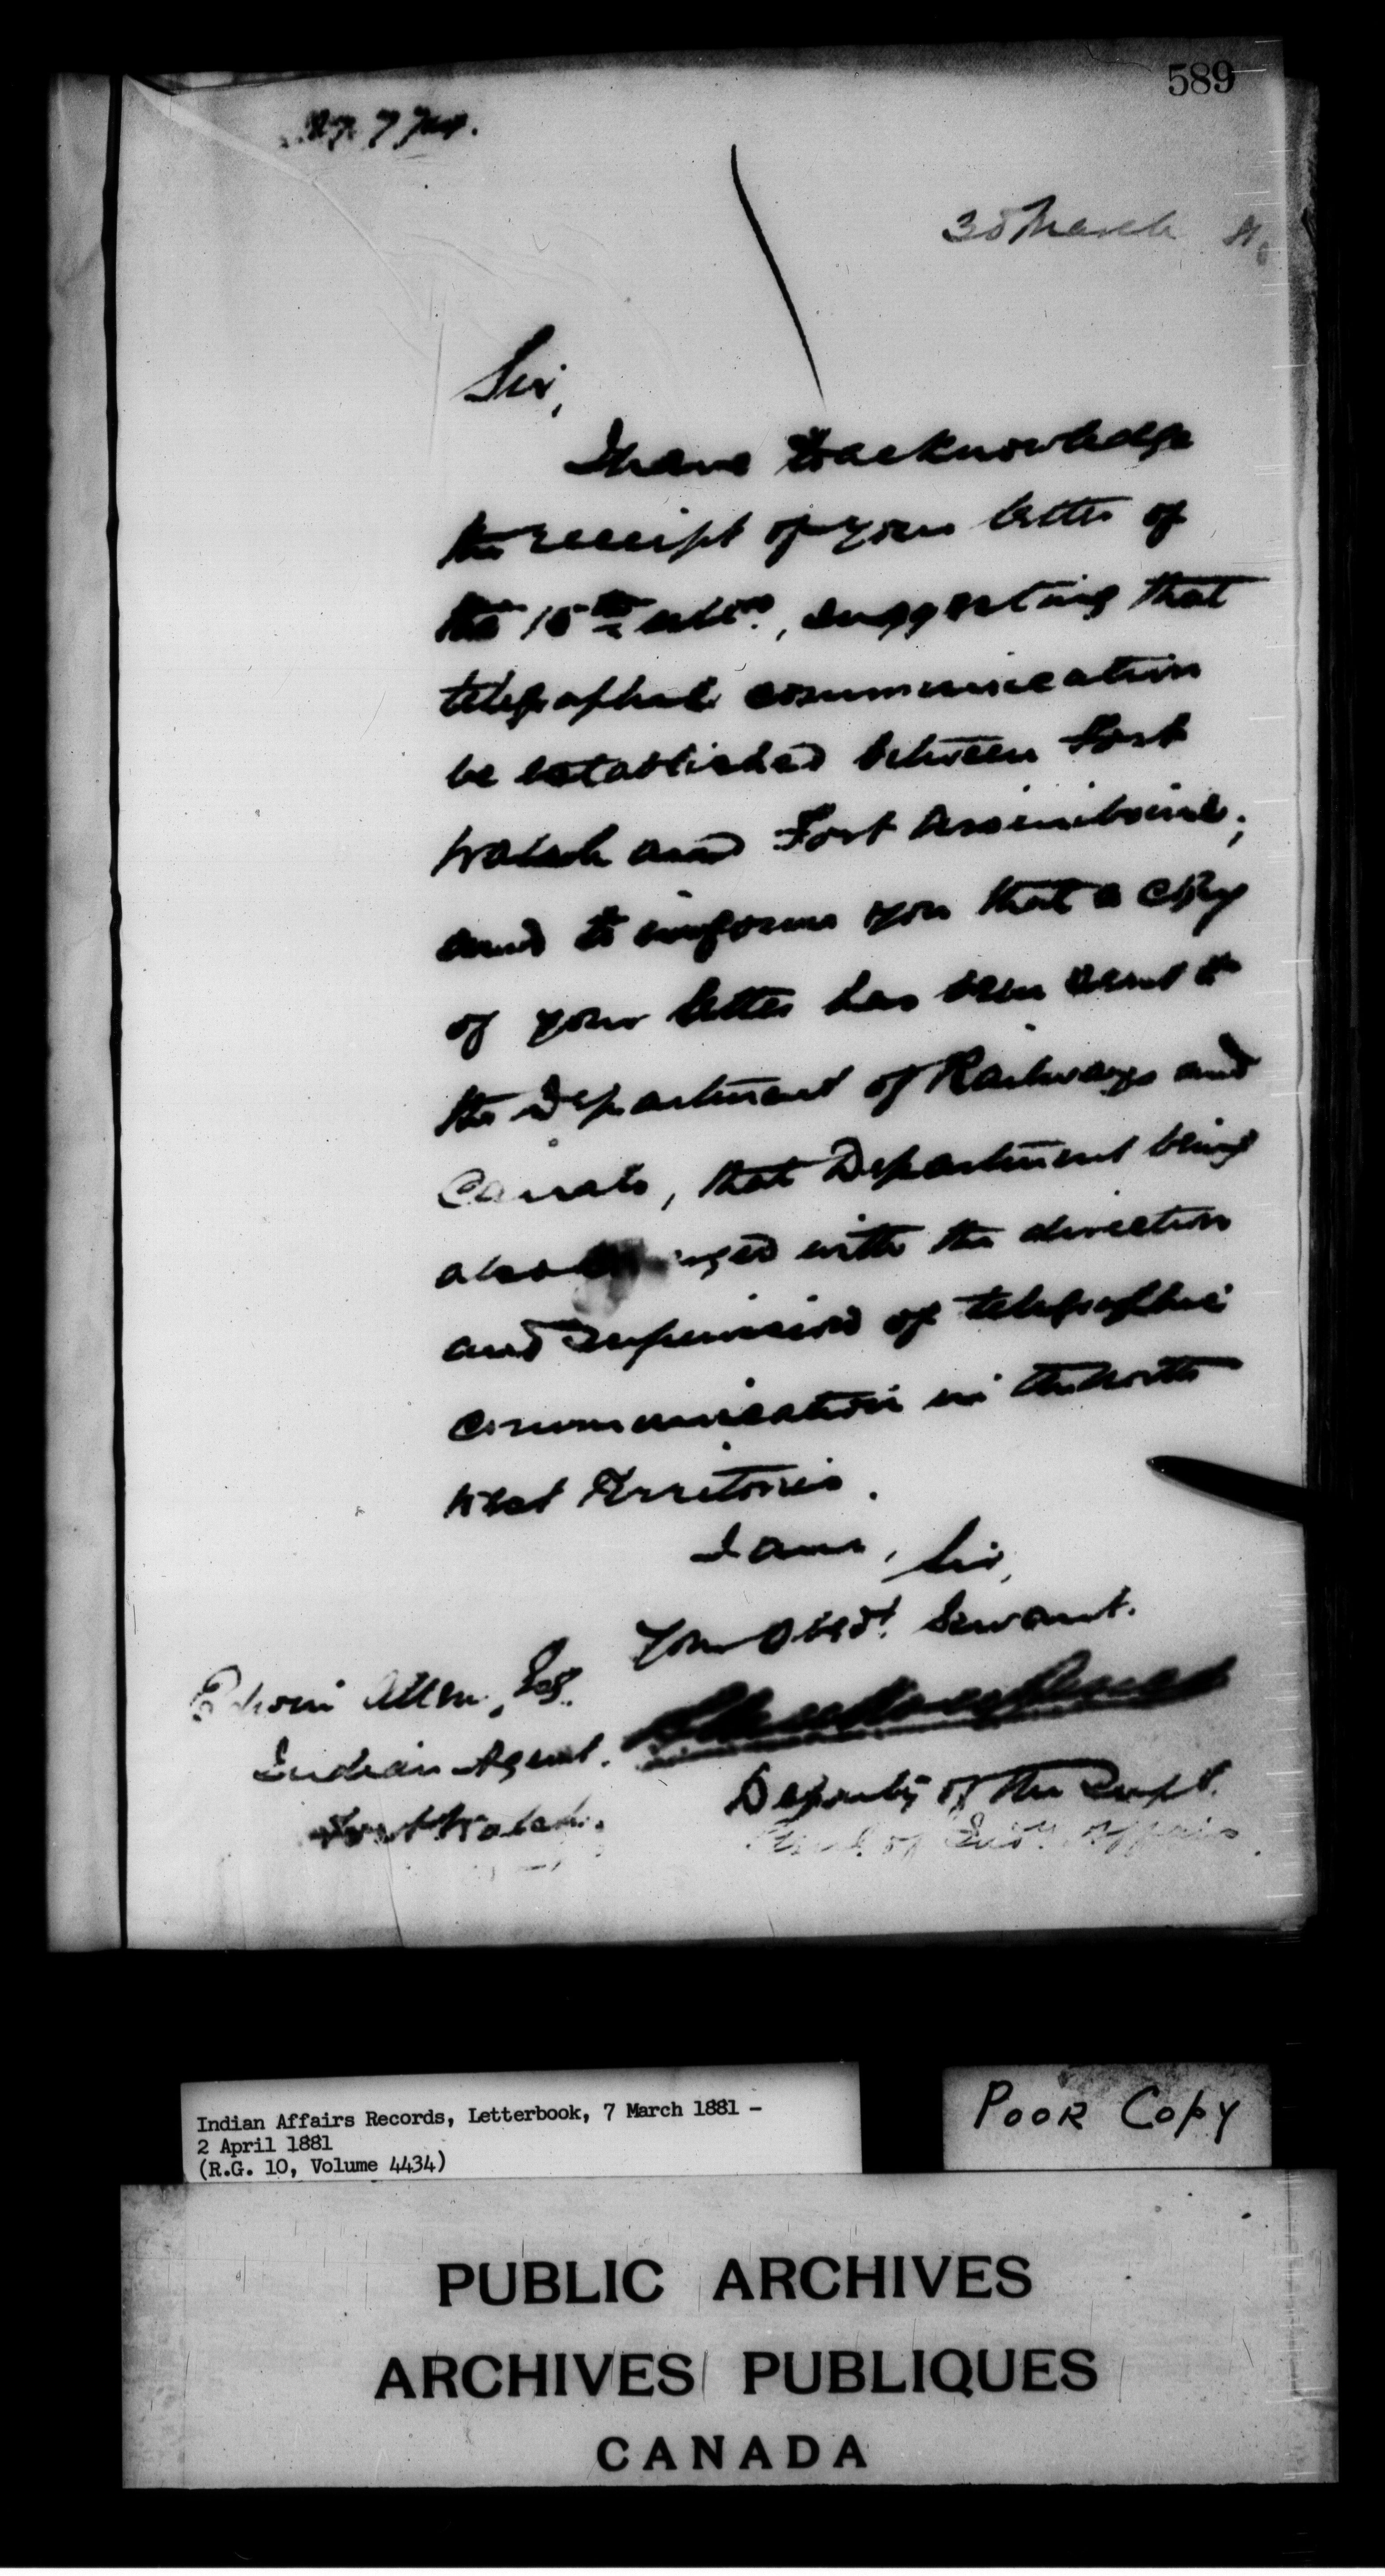 589
30 March
Sir,
I have to acknowledge
the receipt of your letter of
the 15th ulto., suggesting that
telegraphic communication
be established between Fort
Walsh and Fort Assiniboine;
and to inform you that a copy
of your letter has been sent to
the Department of Railways and
Canals, that Department being
also charged with the direction
and supervision of telegraphic
communication in the North
West Territories.
I am, Sir,
Your Obedt. Servant.
Edwin Allen, Esq.
Indian Agent.
Fort Walsh.
Deputy of the Supt.
Genl. of Indn. Affairs
Indian Affairs Records, Letterbook, 7 March 1881 -
2 April 1881
(R.G. 10, Volume 4434)
POOR COPY
PUBLIC ARCHIVES
ARCHIVES PUBLIQUES
CANADA